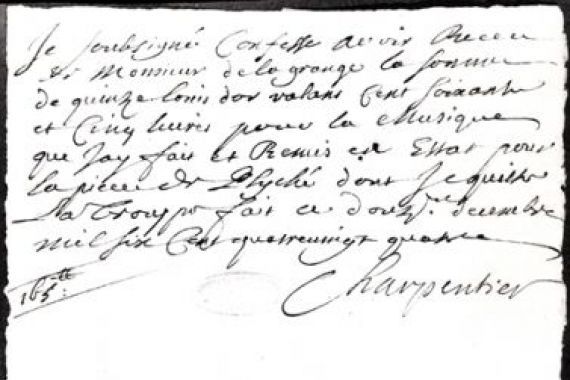 Je soubsigné Confesse avoir Receu
de Monsieur de la grange la somme
de quinze louis dor valans Cent soixante
et Cinq livres pour la Musique
que Jay fait et Remis en Estat pour
la piece de Psyché dont Je quitte
la Trouppe fait ce douz.me decembre
mil six Cent quatrevingt quatre
Charpentier
165tt: